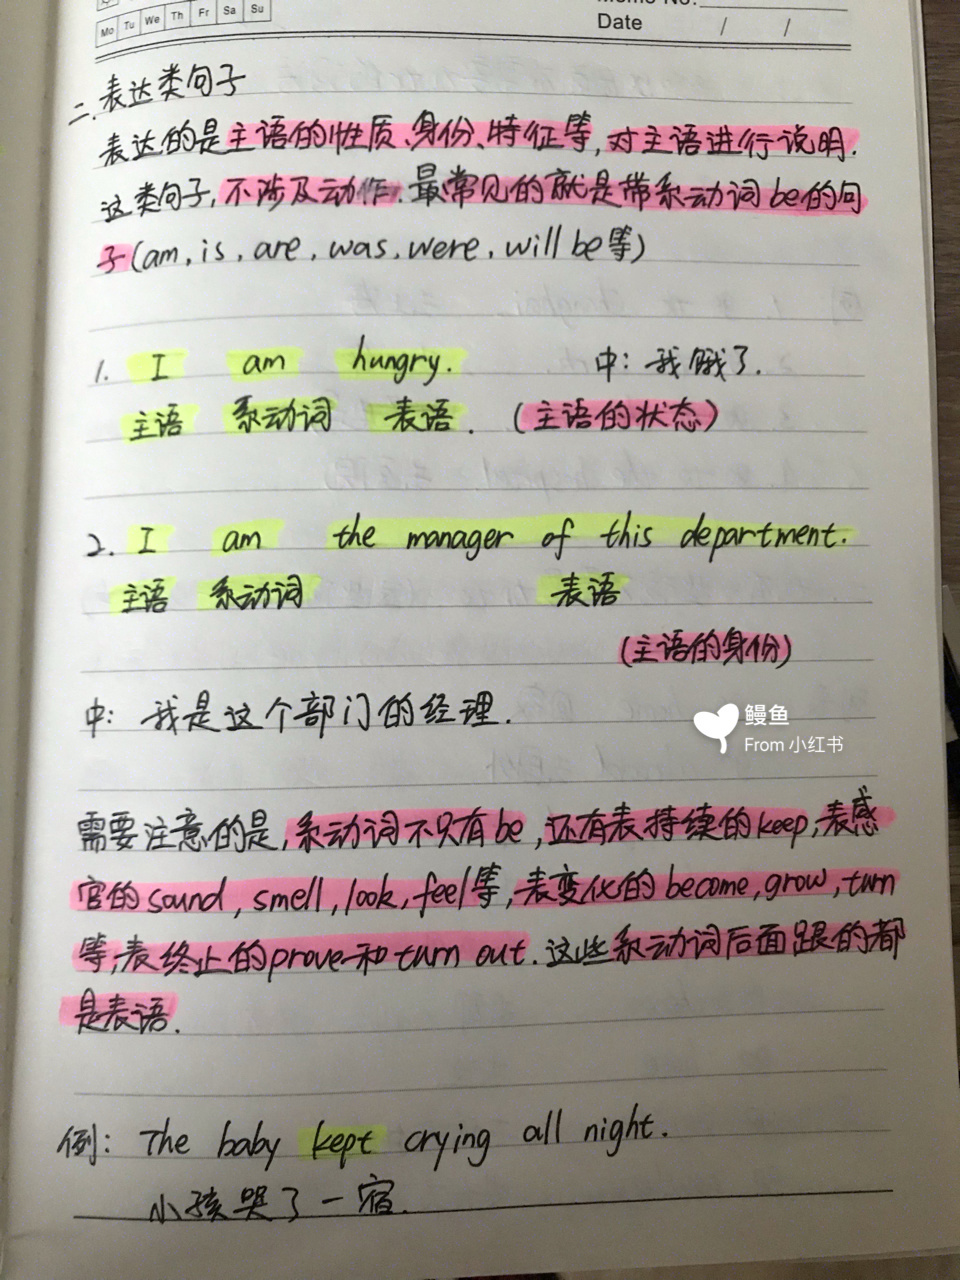 Mo Tu We Th Fr Sa Su
Memo No.
Date / /
二.表达类句子
表达的是主语的性质、身份、特征等,对主语进行说明.
这类句子,不涉及动作.最常见的就是带系动词be的句
子(am,is,are,was,were,will be等)
1. I am hungry. 中:我饿了.
主语 系动词 表语. (主语的状态)
2. I am the manager of this department.
主语 系动词 表语
(主语的身份)
中:我是这个部门的经理.
鳗鱼
From 小红书
需要注意的是,系动词不只有be,还有表持续的keep,表感
官的sound,smell,look,feel等,表变化的become,grow,turn
等,表终止的prove和turn out.这些系动词后面跟的都
是表语.
例: The baby kept crying all night.
小孩哭了一宿.